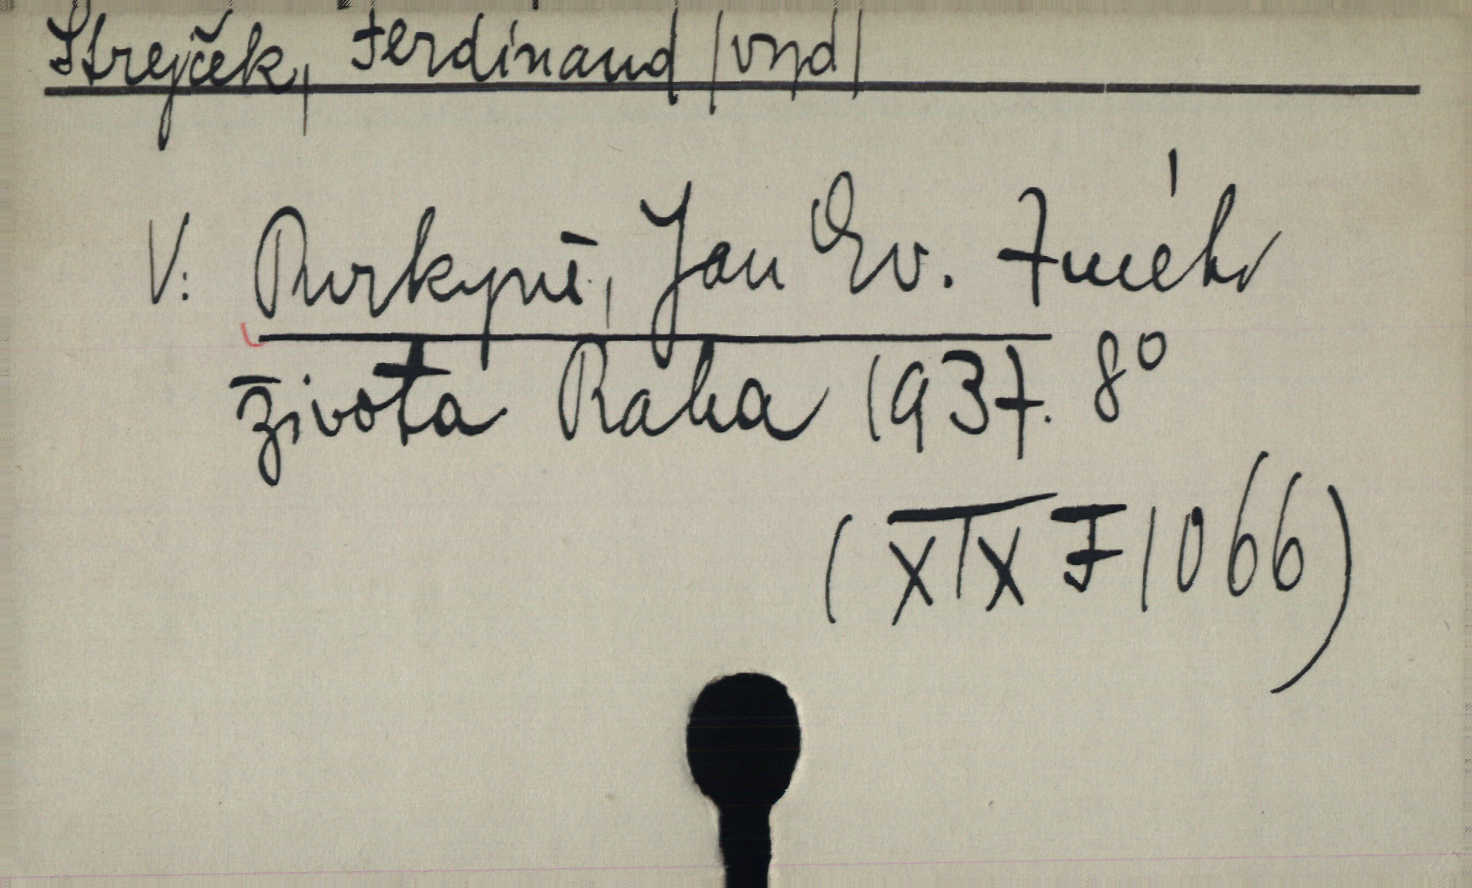 Strejček, Ferdinand /vyd/
V: Purkyně, Jan Ev. Zméh
života Praha 1937. 8°
(XIX F 1066)